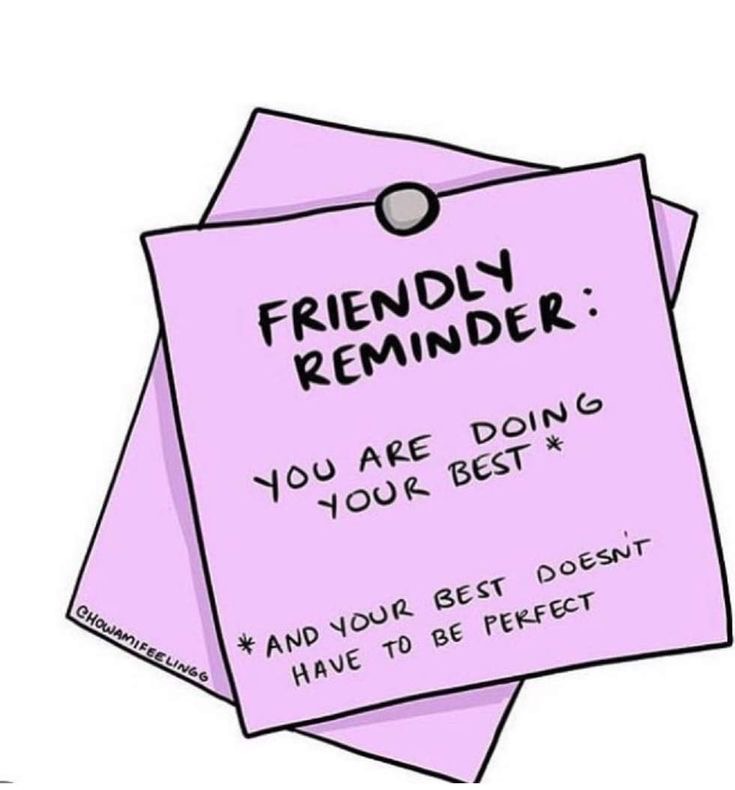 FRIENDLY
REMINDER:
YOU ARE DOING
YOUR BEST *
* AND YOUR BEST DOESN'T
HAVE TO BE PERFECT
@HOWAMIFEELINGG